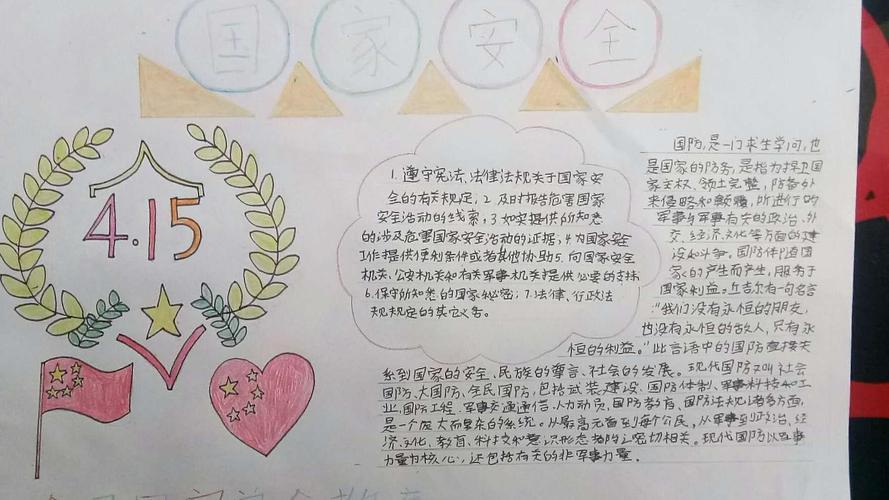 国家安全
4.15
1.遵守宪法、法律法规关于国家安
全的有关规定,2及时报告危害国家
安全活动的线索,3,如实提供所知悉
的涉及危害国家安全活动的证据,4.为国家安全
工作提供便利条件或者其他协助5.向国家安全
机关、公安机关和有关军事机关提供必要的支持
6.保守所知悉的国家秘密;7.法律、行政法
规规定的其它义务。
国防,是一门求生学问,也
是国家的防务,是指为捍卫国
家主权、领土完整,防备外
来侵略和颠覆,所进行的
军事与军事有关的政治、外
交、经济、文化等方面的建
设和斗争。国防伴随国
家的产生而产生,服务于
国家利益。丘吉尔有一句名言
:“我们没有永恒的朋友,
也没有永恒的敌人,只有永
恒的利益。”此言语中的国防直接关
系到国家的安全、民族的尊言、社会的发展。现代国防又叫社会
国防、大国防、全民国防,包括武装建设、国防体制、军事科技和工
业,国防工程、军事交通通信、人力动员,国防教育、国防法规心诸多方面,
是一个庞大而复杂的系统。从最高元首到每个公民,从军事到政治、经
济、文化、教育、科技和意识形态都与之密切相关。现代国防以军事
力量为核心,还包括有关的非军事力量。